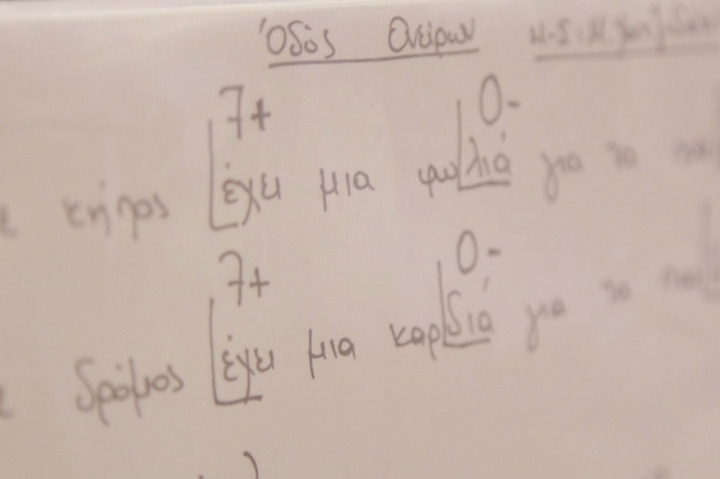 Ὁδός Ονείρων
7+ 0-
κήπος έχει μια φωλιά για το
7+ 0-
δρόμος έχει μια καρδιά για το